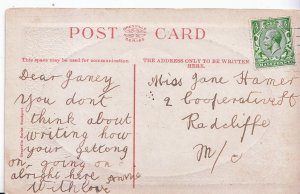 POST CARD
This space may be used for communication
THE ADDRESS ONLY TO BE WRITTEN HERE.
Dear Janey
You dont
think about
writing how
your getting
on, going on
alright here
With love Annie
Miss Jane Hamer
2 Cooperative St
Radcliffe
M/c